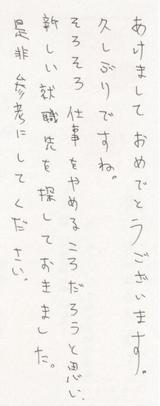 あけましておめでとうございます。
久しぶりですね。
そろそろ仕事をやめるころだろうと思い、
新しい就職先を探しておきました。
是非参考にしてください。